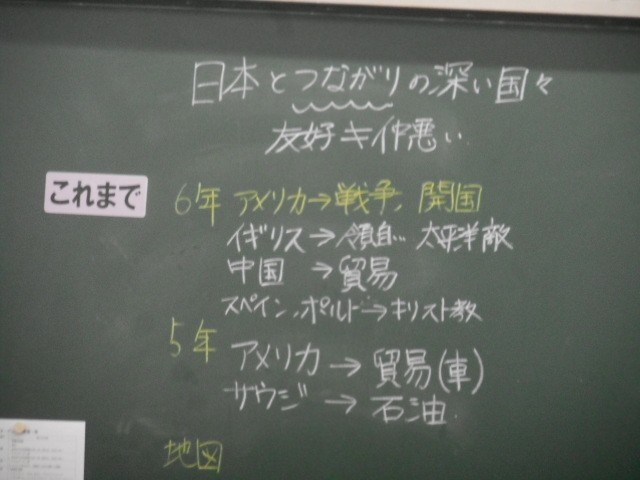 日本とつながりの深い国々
友好キ仲悪い
これまで
6年 アメリカ→戦争、開国
イギリス→領自… 太平洋敵
中国 →貿易
スペイン、ポルト→キリスト教
5年
アメリカ → 貿易(車)
サウジ → 石油
地図